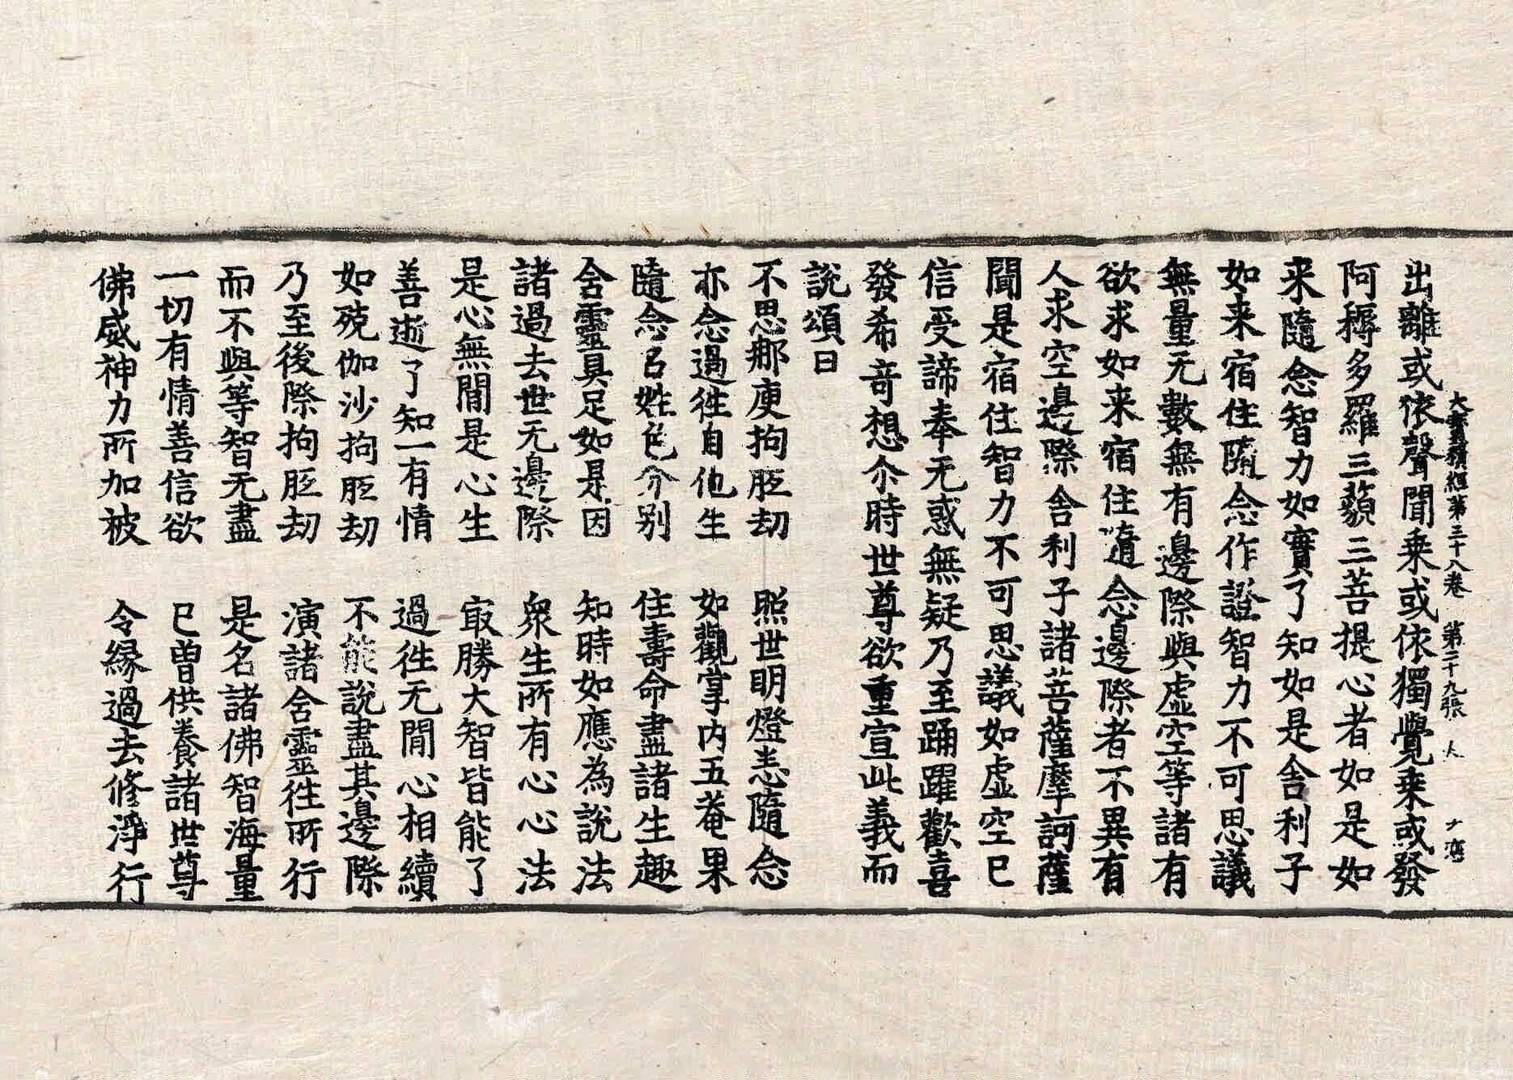 大寶積經第三十八卷 第二十九張 火
出離或依聲聞乘或依獨覺乘或發
阿耨多羅三藐三菩提心者如是如
来隨念智力如實了知如是舍利子
如来宿住隨念作證智力不可思議
無量无數無有邊際與虛空等諸有
欲求如来宿住隨念邊際者不異有
人求空邊際舍利子諸菩薩摩訶薩
聞是宿住智力不可思議如虛空已
信受諦奉无惑無疑乃至踊躍歡喜
發希竒想尒時世尊欲重宣此義而
說頌曰
不思那庾拘胝劫 照世明燈悉隨念
亦念過徃自他生 如觀掌內五菴果
隨念名姓色分别 住壽命盡諸生趣
含靈具足如是因 知時如應為說法
諸過去世无邊際 衆生所有心心法
是心無間是心生 㝡勝大智皆能了
善逝了知一有情 過徃无間心相續
如殑伽沙拘胝劫 不能說盡其邊際
乃至後際拘胝劫 演諸含靈徃所行
而不與等智无盡 是名諸佛智海量
一切有情善信欲 已曽供養諸世尊
佛威神力所加被 令縁過去修淨行